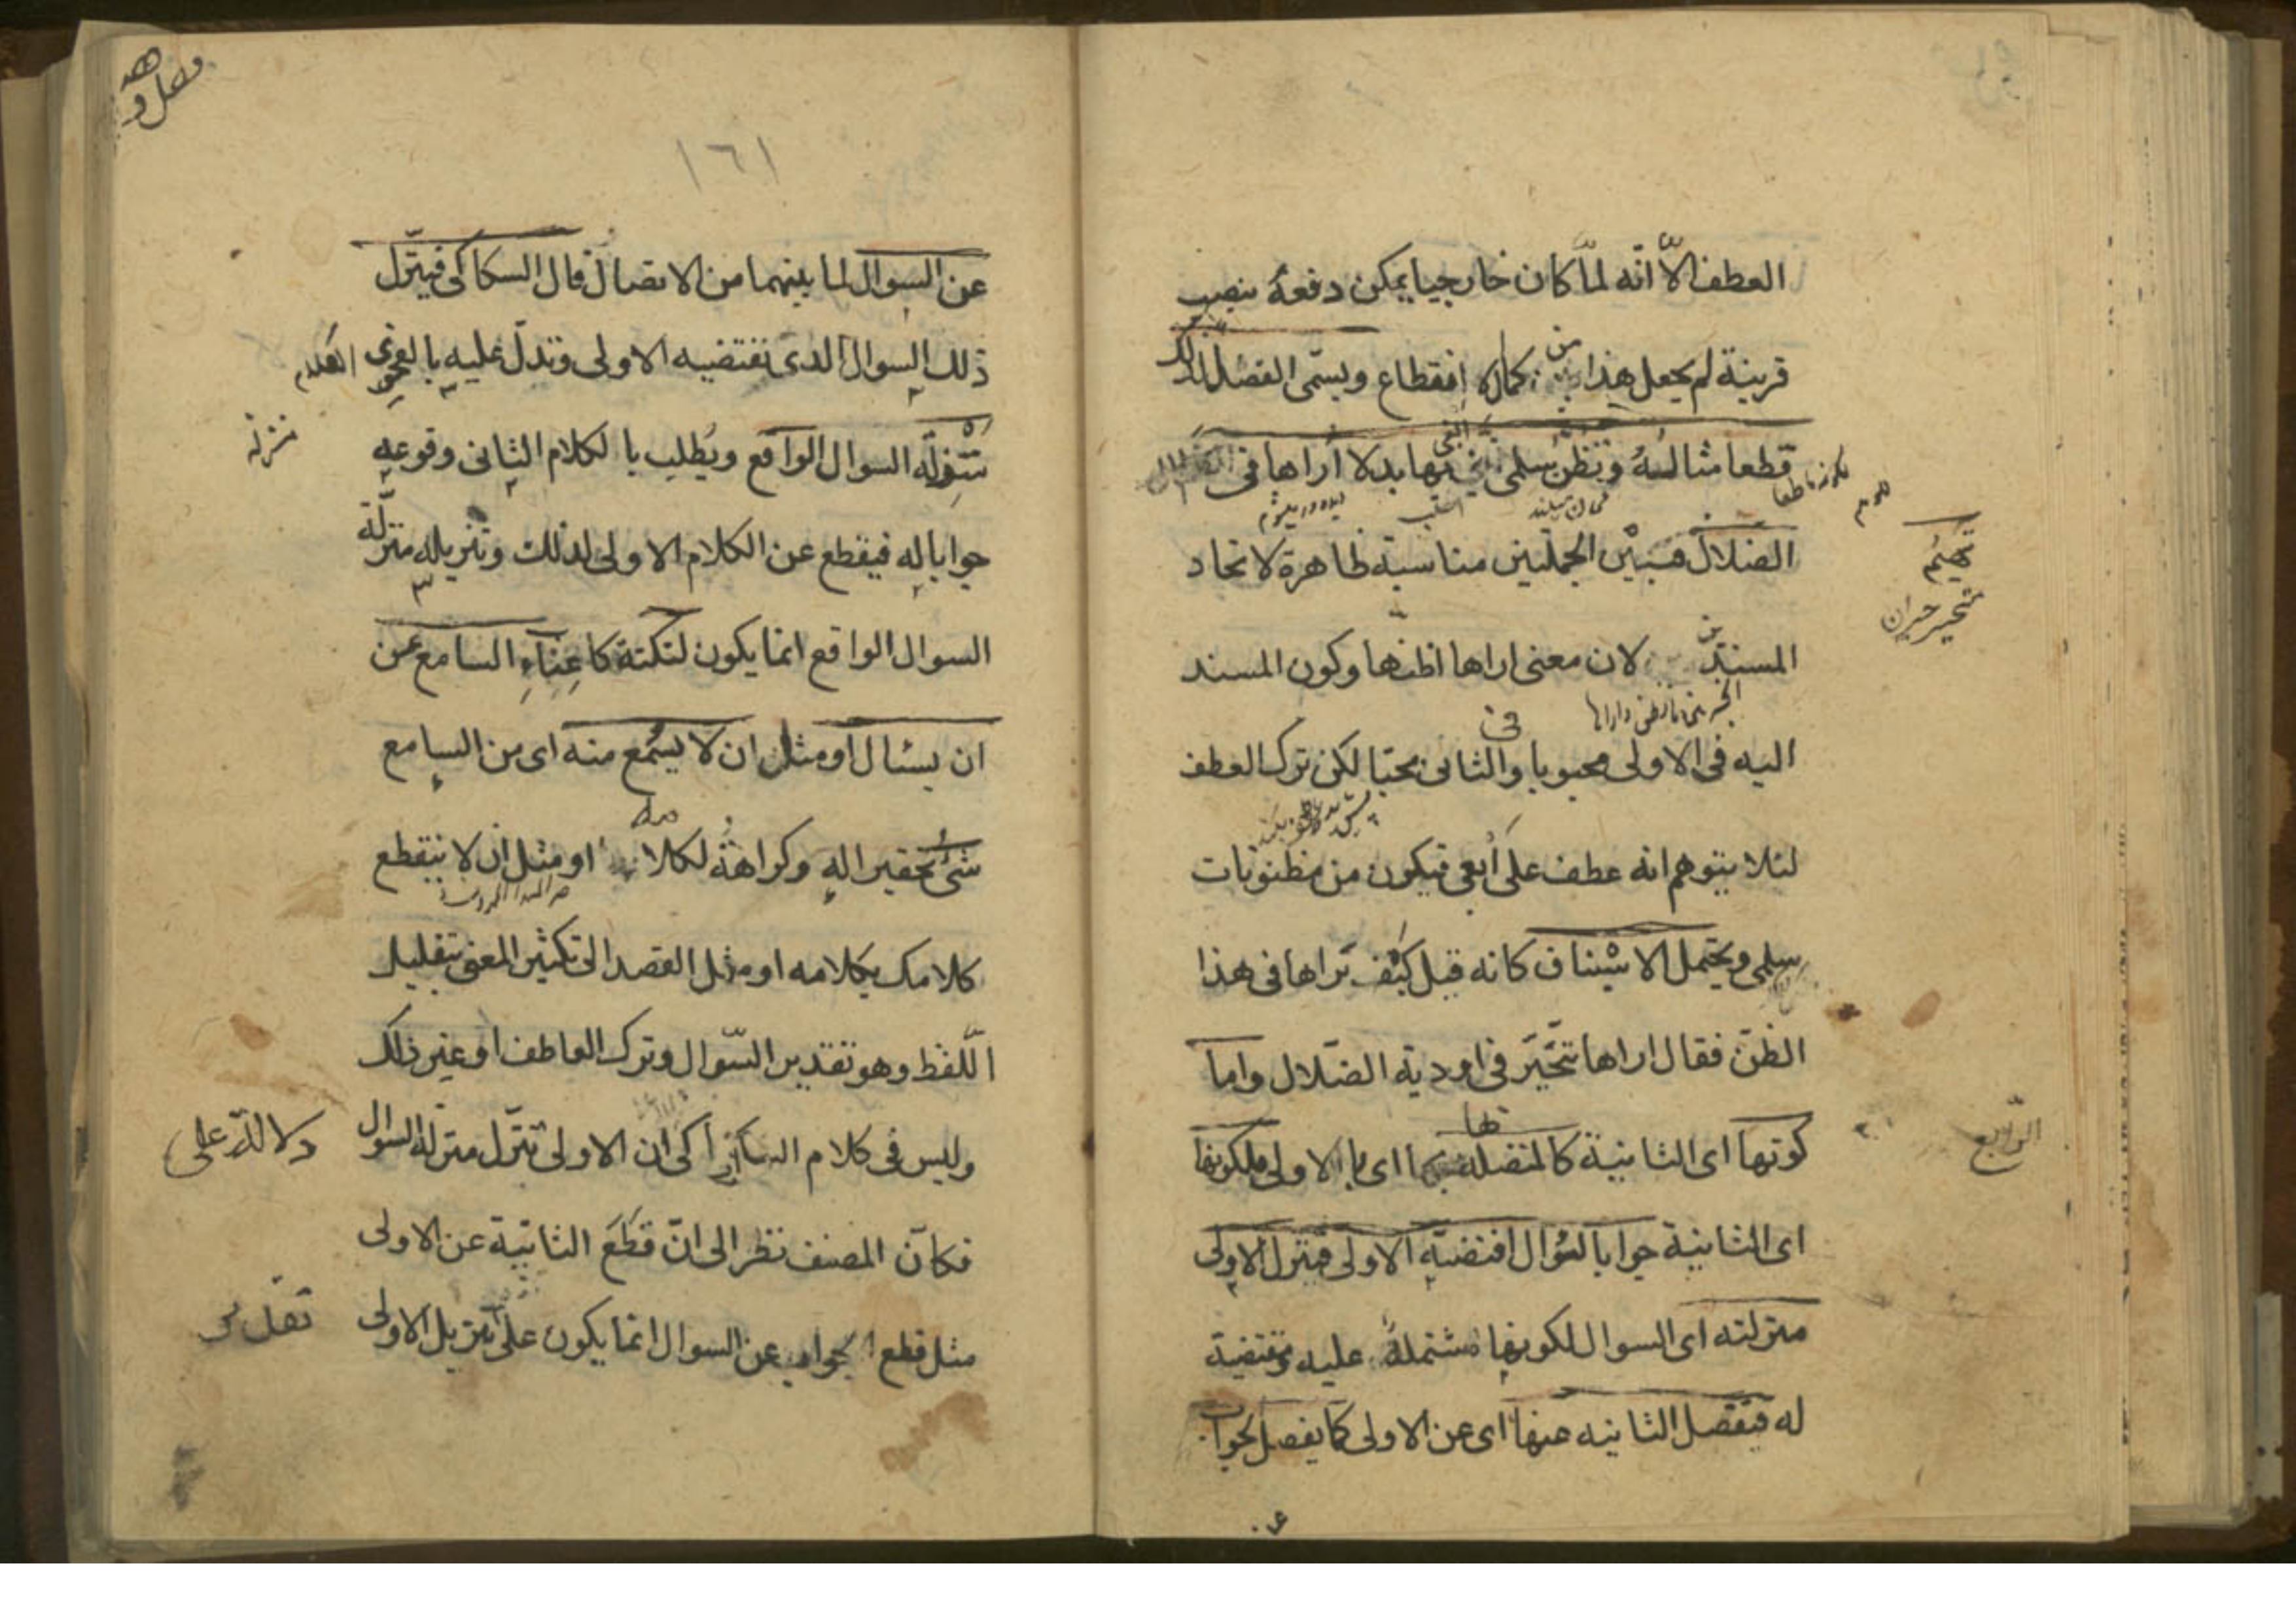 العطف الّا انّه لمّا كان خارجيا يمكن دفعهُ بنصب
قرينة لم يجعل هذا من كمال انقطاع ويسمّى الفصل لذلك
قطعا مثاله وتظنّ سلمى انّني ابغى بها بدلا أراها فى
الضلال تهيم
فبين الجملتين مناسبة ظاهرة لاتحاد
تحير حيران
المسندين لان معنى اراها اظنّها وكون المسند
اليه فى الاولى محبوبا وفى الثانى محبّا لكن ترك العطف
لئلا يتوهم انه عطف على أبغى فيكون من مظنونات
سلمى ويحتمل الاستيناف كانه قيل كيف تراها فى هذا
الظنّ فقال اراها تتحيّر فى اودية الضّلال واما
كونها اى الثانية كالمتصلة بها اى بالاولى فلكونها
الرّابع
اى الثانية جوابا لسؤال اقتضته الاولى فينزل الاولى
منزلته اى السوال لكونها مشتملةً عليه ومقتضية
له فتفصل الثانيه عنها اى عن الاولى كما يفصل الجواب
١٦١
عن السوال لما بينهما من الاتصال قال السكاكى فينزّل
ذلك السوال الذى تقتضيه الاولى وتدلّ عليه بالفحوى
منزلة السوال الواقع ويُطلب بالكلام الثانى وقوعه
منزلة
جوابا له فيقطع عن الكلام الاولى لذلك وتنزيله منزلة
السوال الواقع انما يكون لنكتة كاغناءِ السامع عن
ان يسئال او مثل ان لا يسمع منه اى من السامع
شئ تحقيرا له وكراهةً لكلامه او مثل ان لا ينقطع
كلامك بكلامه او مثل القصد الى تكثير المعنى بتقليل
اللّفظ وهو تقدير السّوال وترك العاطف او غير ذلك
وليس فى كلام السكاكى ان الاولى تنزّل منزلة السوال
دلالة على
فكانّ المصنف نظر الى انّ قطع الثانية عن الاولى
مثل قطع الجواب عن السوال انما يكون على تنزيل الاولى